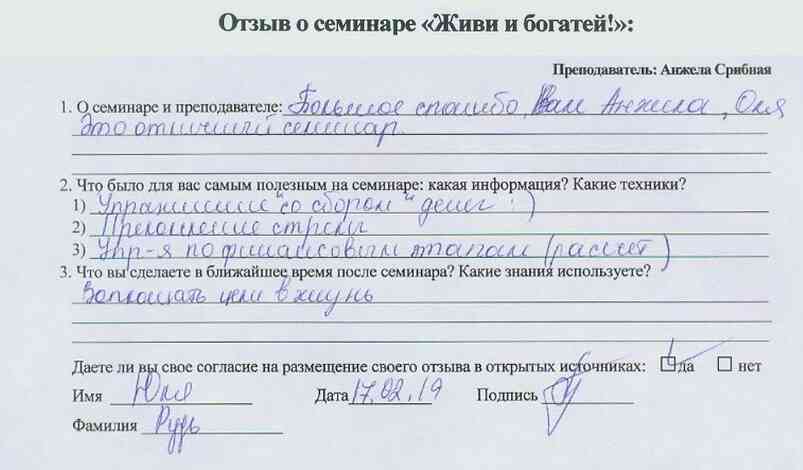 Отзыв о семинаре «Живи и богатей!»:
Преподаватель: Анжела Срибная
1. О семинаре и преподавателе: Большое спасибо, Вам Анжила, Оля
это отличный семинар.
2. Что было для вас самым полезным на семинаре: какая информация? Какие техники?
1) Упражнение "со сбором" денег :)
2) Преломление стрелы
3) Упр-я по финансовым этапам (расчет)
3. Что вы сделаете в ближайшее время после семинара? Какие знания используете?
Воплощать цели в жизнь
Даете ли вы свое согласие на размещение своего отзыва в открытых источниках: да нет
Имя Юля Дата 17.02.19 Подпись
Фамилия Рудь